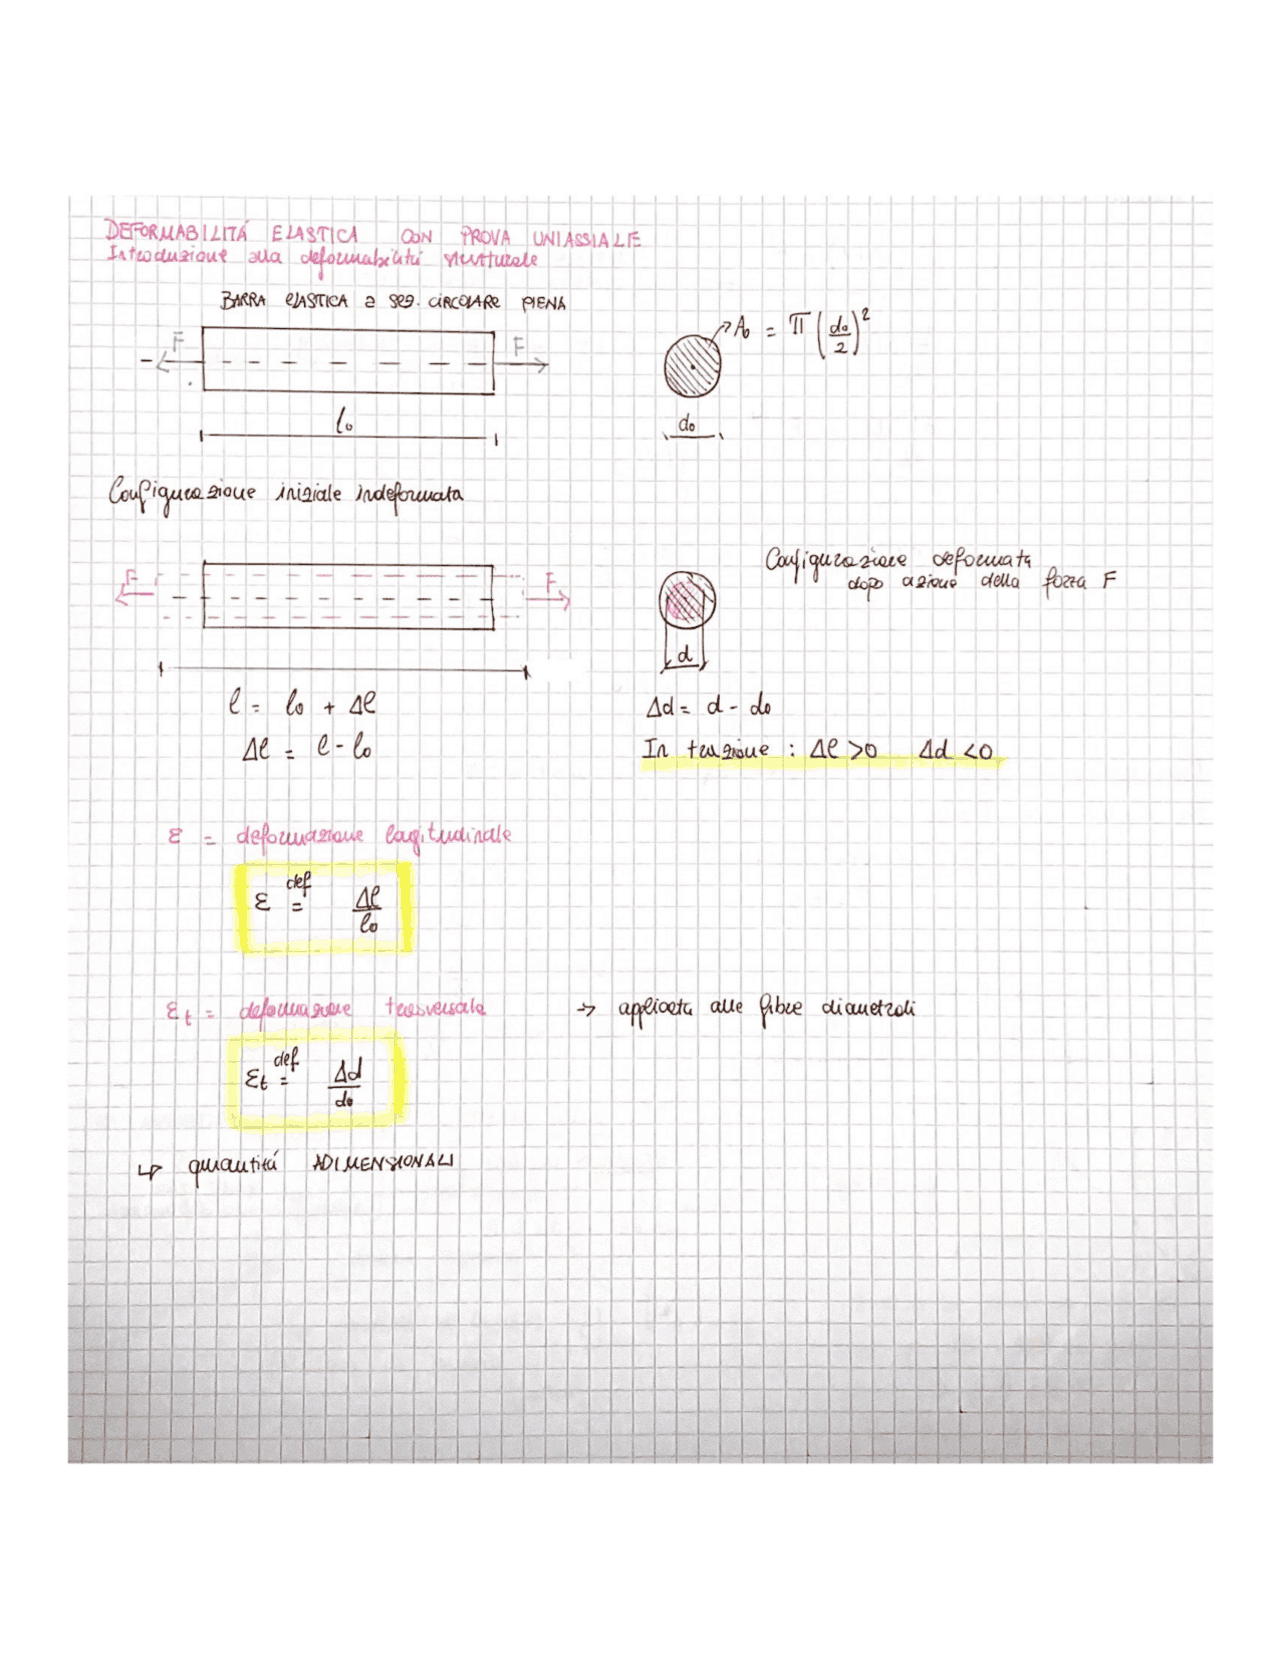 DEFORMABILITÁ ELASTICA CON PROVA UNIASSIALE
Introduzione alla deformabilità strutturale
BARRA ELASTICA a sez. CIRCOLARE PIENA
F F
A₀ = π (d₀/2)²
l₀
d₀
Configurazione iniziale indeformata
Configurazione deformata
dopo azione della forza F
F F
d
l = l₀ + Δl
Δd = d - d₀
Δl = l - l₀
In tensione : Δl > 0 Δd < 0
ε = deformazione logitudinale
ε def= Δl/l₀
εt = deformazione trasversale → applicata alle fibre diametrali
εt def= Δd/d₀
↳ quantitá ADIMENSIONALI